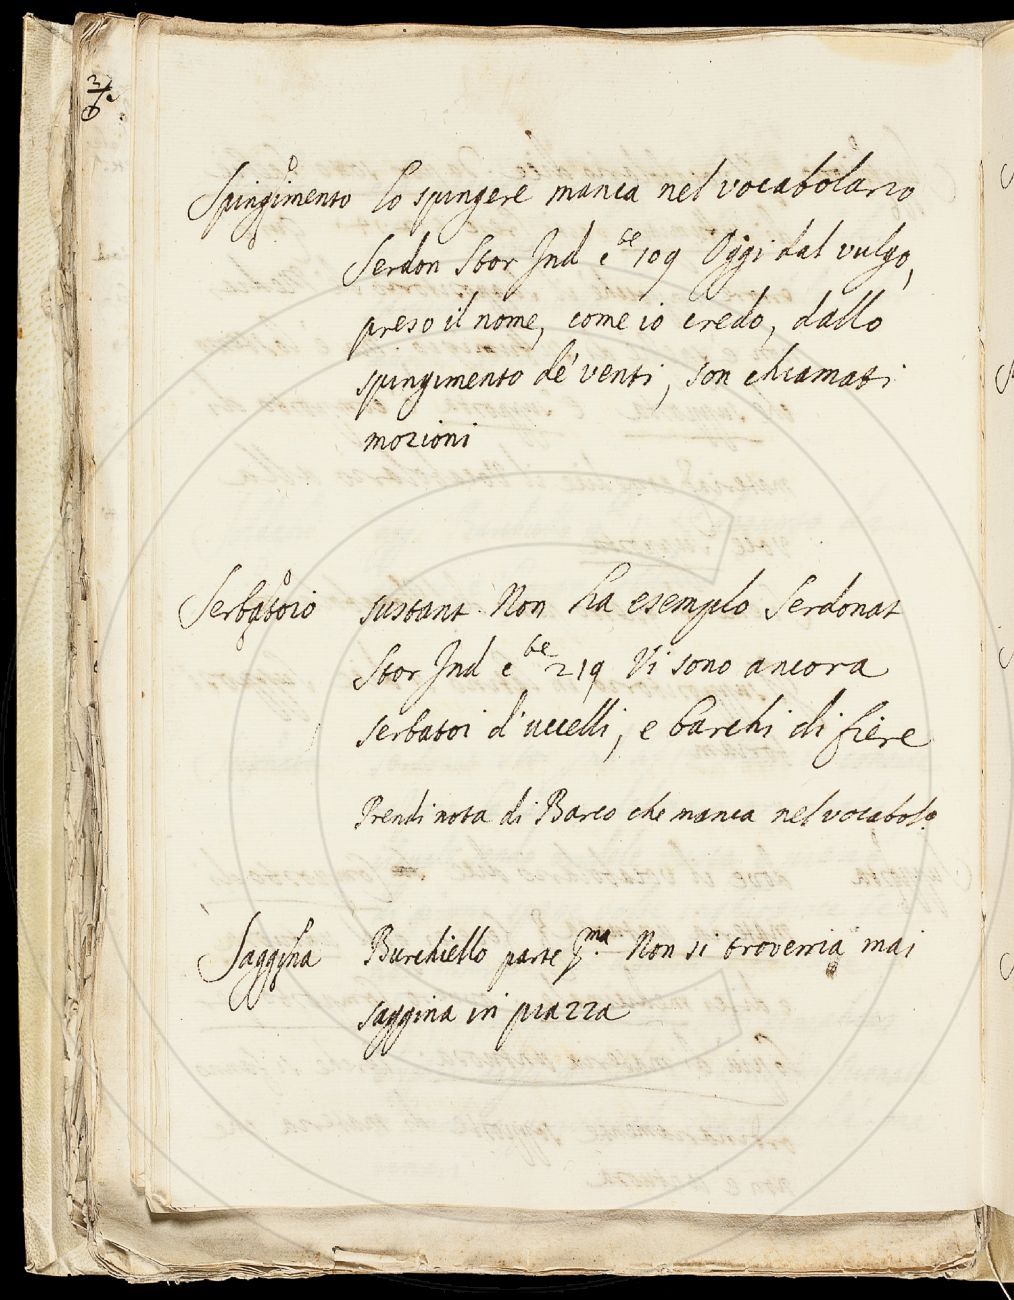 Spingimento Lo spingere manca nel vocabolario
Serdon Stor Ind c te 109 Oggi dal vulgo,
preso il nome, come io credo, dallo
spingimento de' venti, son chiamati
mozioni
Serbatoio sustant. Non ha esemplo Serdonat
Stor Ind c te 219 Vi sono ancora
serbatoi d'uccelli, e barchi di fiere
Prendi nota di Barco che manca nel vocabol.o
Saggina Burchiello parte p.ma Non si troverria mai
saggina in piazza